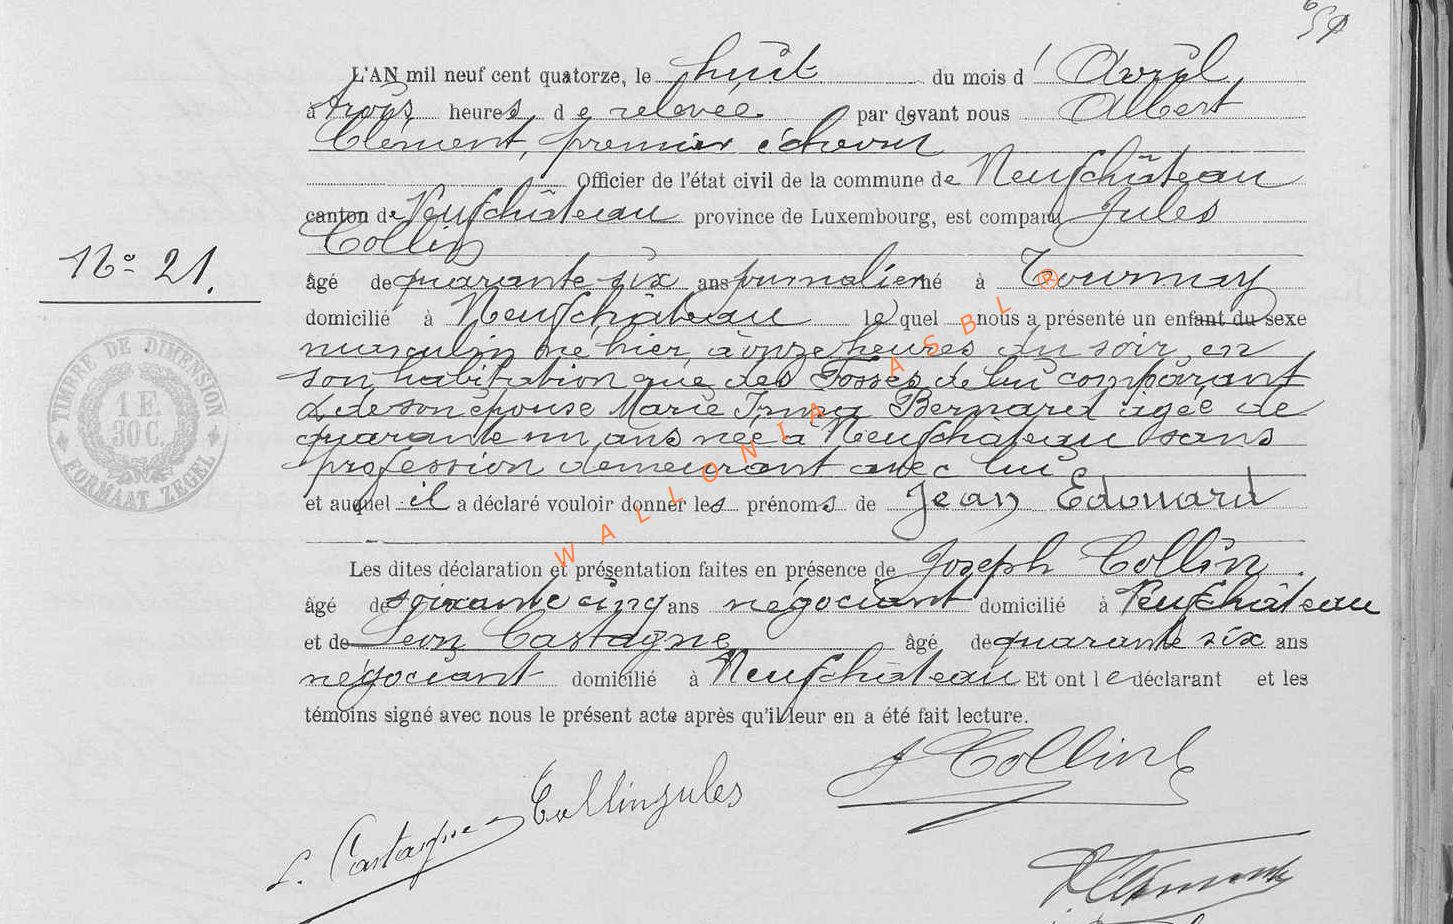 59
L'AN mil neuf cent quatorze, le huit du mois d'Avril,
à trois heures de relevée par devant nous Albert
Clément, premier échevin
Officier de l'état civil de la commune de Neufchâteau
canton de Neufchâteau province de Luxembourg, est comparu Jules
Collin
N° 21.
âgé de quarante six ans journalier né à Tournay
domicilié à Neufchâteau lequel nous a présenté un enfant du sexe
masculin né hier, à onze heures du soir, en
son habitation rue des Fossés de lui comparant
& de son épouse Marie Bernard âgée de
quarante un ans née à Neufchâteau sans
profession demeurant avec lui
et auquel il a déclaré vouloir donner les prénoms de Jean Edouard
Les dites déclaration et présentation faites en présence de Joseph Collin
âgé de soixante cinq ans négociant domicilié à Neufchâteau
et de Léon Castagne âgé de quarante six ans
négociant domicilié à Neufchâteau Et ont le déclarant et les
témoins signé avec nous le présent acte après qu'il leur en a été fait lecture.
J Collin
Collin Jules
L. Castagne
A Clément
TIMBRE DE DIMENSION
1 F.
30 C.
FORMAAT ZEGEL
WALLONIA ASBL ®